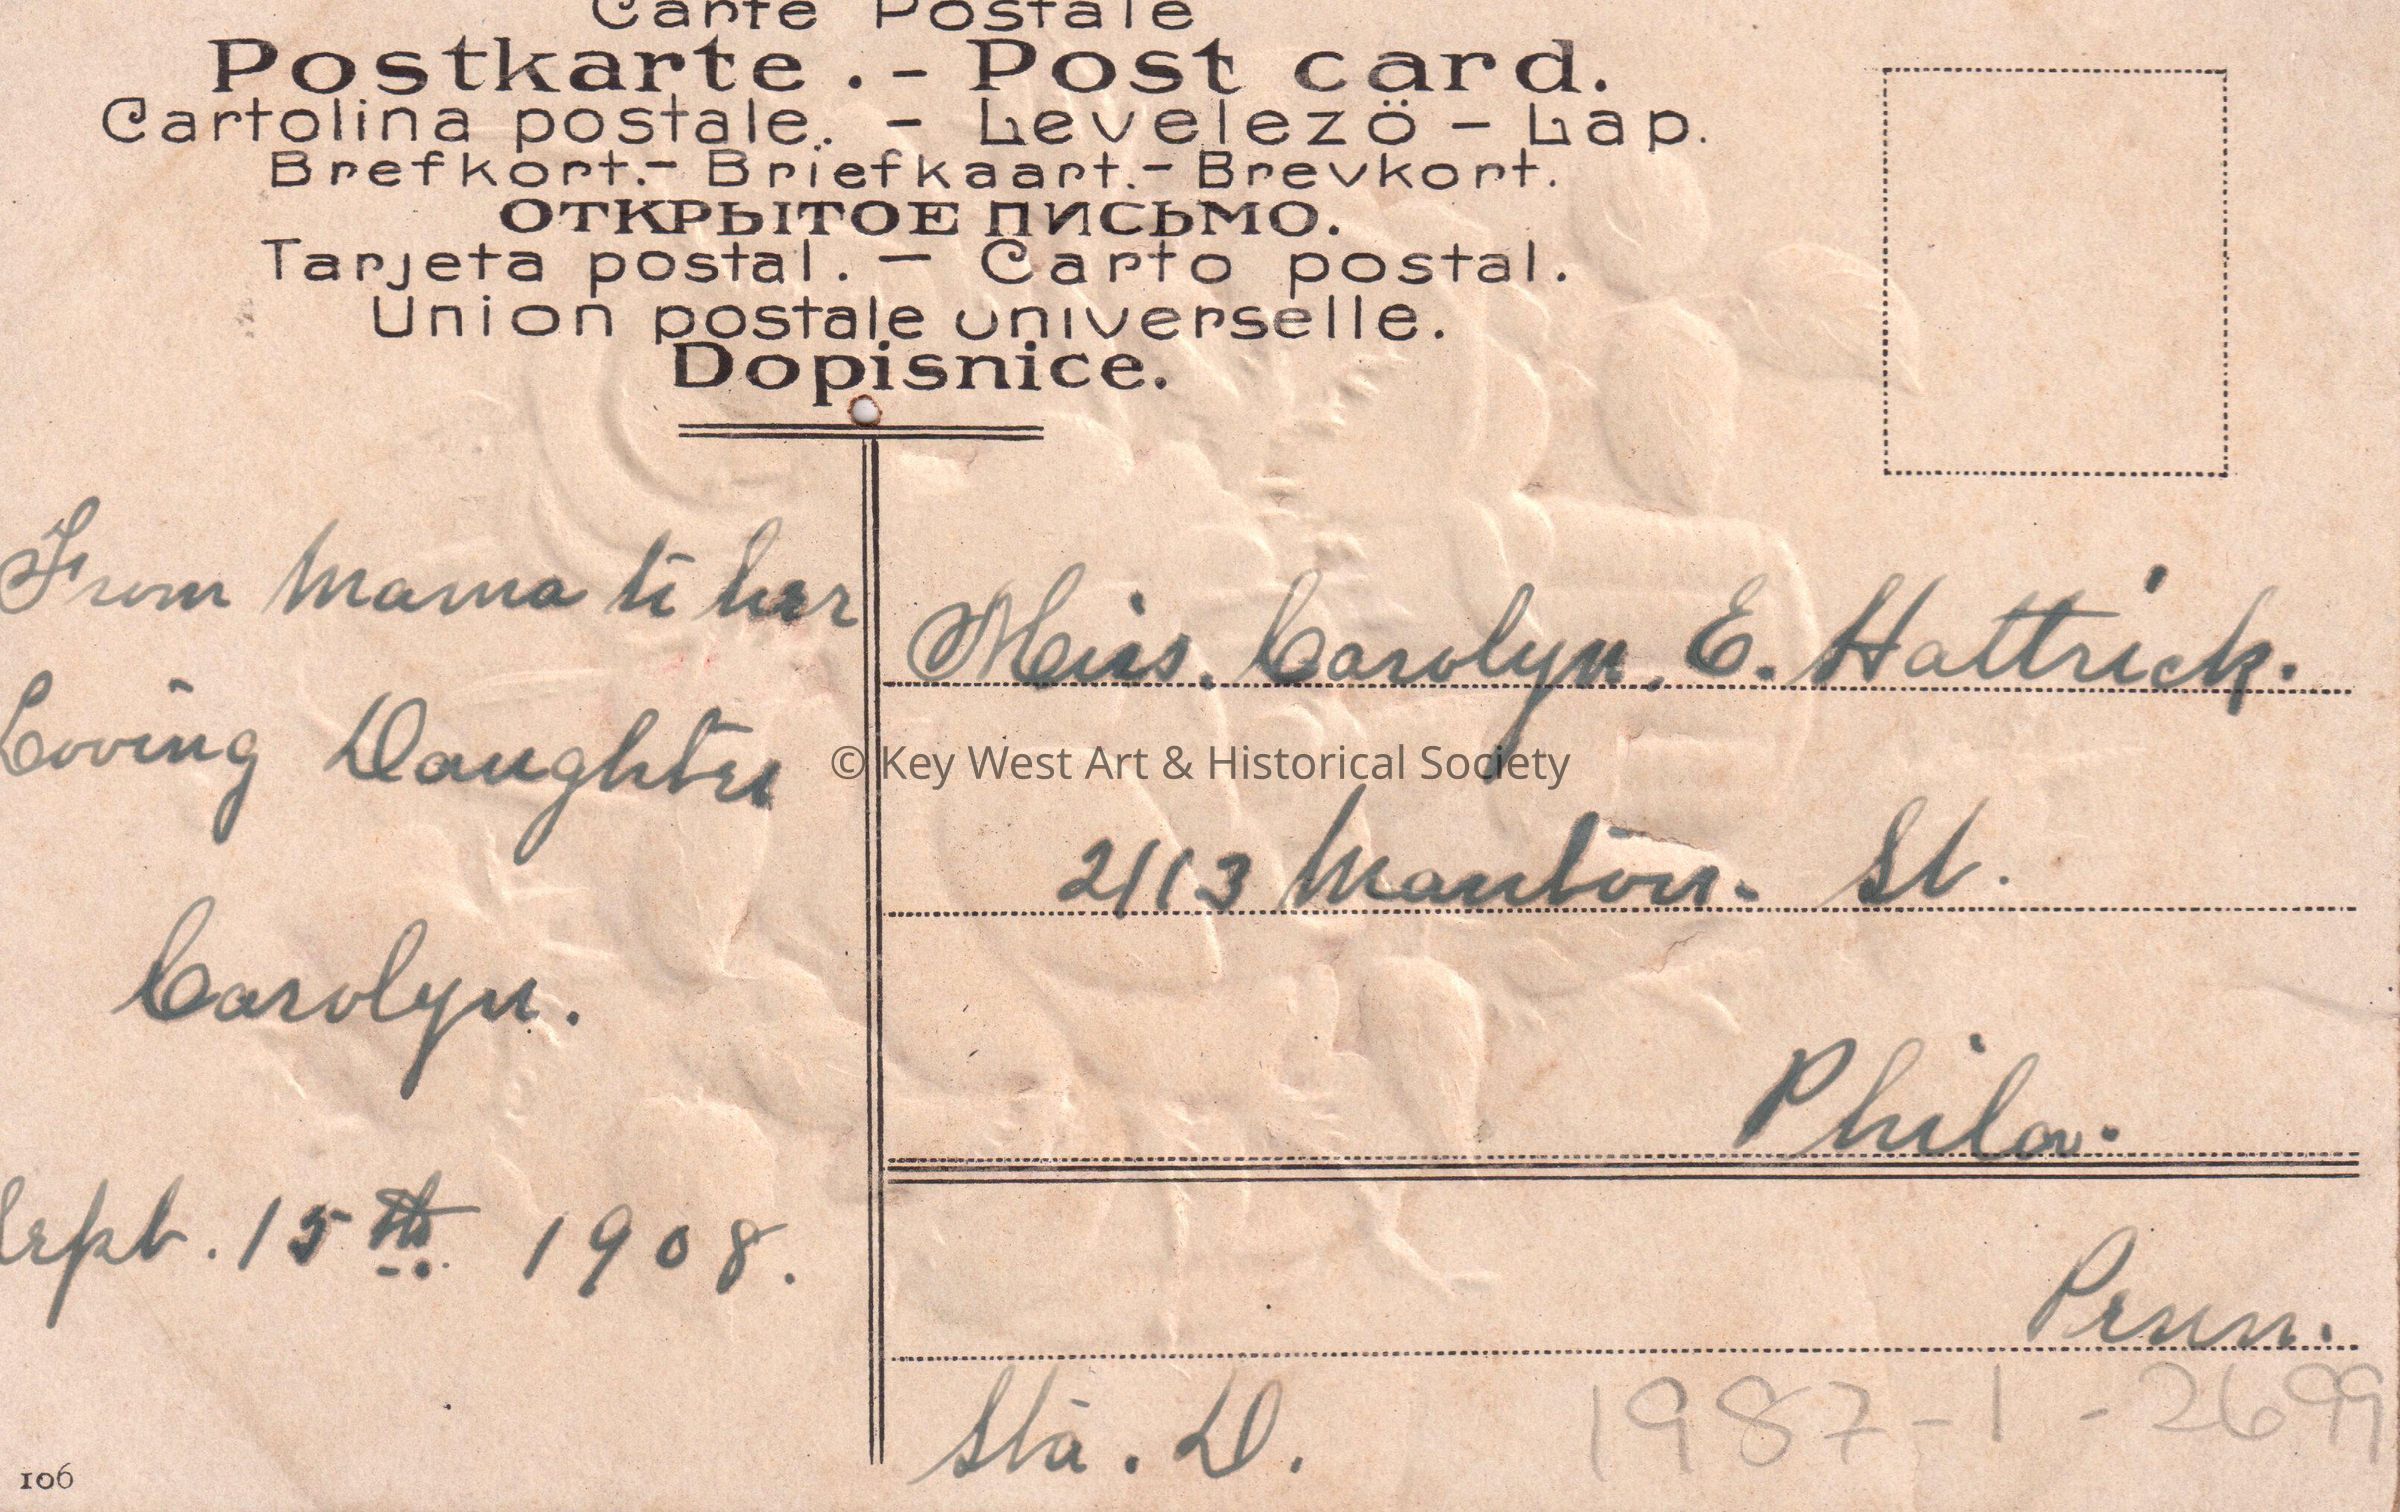 Carte Postale
Postkarte. - Post card.
Cartolina postale. - Levelezö - Lap.
Brefkort. - Briefkaart. - Brevkort.
ОТКРЫТОЕ ПИСЬМО.
Tarjeta postal. - Carto postal.
Union postale universelle.
Dopisnice.
From Mama to her
Loving Daughter
Carolyn.
Sept. 15th 1908.
106
Miss. Carolyn. E. Hattrick.
© Key West Art & Historical Society
2113 Manton - St.
Phila.
Penn.
Sta. D.
1987-1-2699